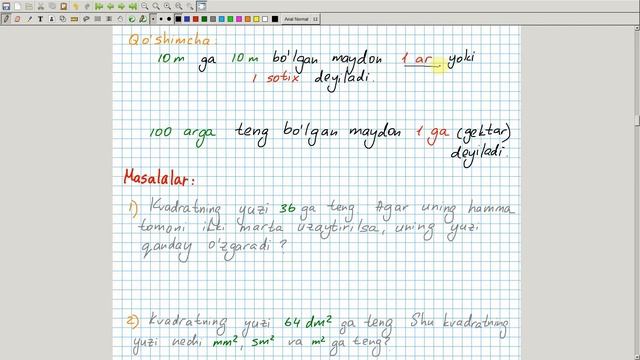 Qo'shimcha:
10 m ga 10 m bo'lgan maydon 1 ar yoki
1 sotix deyiladi.
100 arga teng bo'lgan maydon 1 ga (gektar)
deyiladi.
Masalalar:
1) Kvadratning yuzi 36 ga teng. Agar uning hamma
tomoni ikki marta uzaytirilsa, uning yuzi
qanday o'zgaradi?
2) Kvadratning yuzi 64 dm² ga teng. Shu kvadratning
yuzi nechi mm², sm² va m² ga teng?